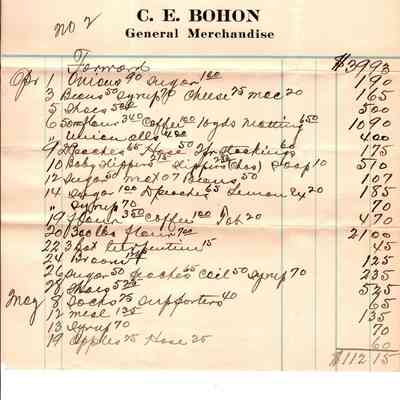 no 2
C. E. BOHON
General Merchandise
Forward $39 93
Apr 1 Onions 90 Sugar 1 00 1 90
3 Beans 50 Syrup 70 Cheese 25 mac 20 1 65
5 Shoes 5 00 5 00
6 50# flour 3 40 Coffee 1 00 10 yds Matting 6 50 10 90
" Union alls 4 00 4 00
9 D Peaches 65 Hose 50 2 pr Stockings 60 1 75
10 Baby Slippers Slippers (has) Soap 10 5 10
12 Sugar 50 Beans 50 1 07
14 Sugar 1 00 D peaches 65 Lemon Ex 20 1 85
" Syrup 70 70
19 Flour 3 50 Coffee 1 00 Tob 20 4 70
20 300 lbs Flour 7 00 21 00
22 3 bot turpentine 15 45
24 Broom 1 25
26 Sugar 50 Peaches 65 Oil 50 Syrup 70 2 35
28 Shoes 5 25 5 25
May 8 Socks 25 Supporters 40 65
12 meal 1 35 1 35
13 Syrup 70 70
19 Apples 25 Hose 25 60
$112 15